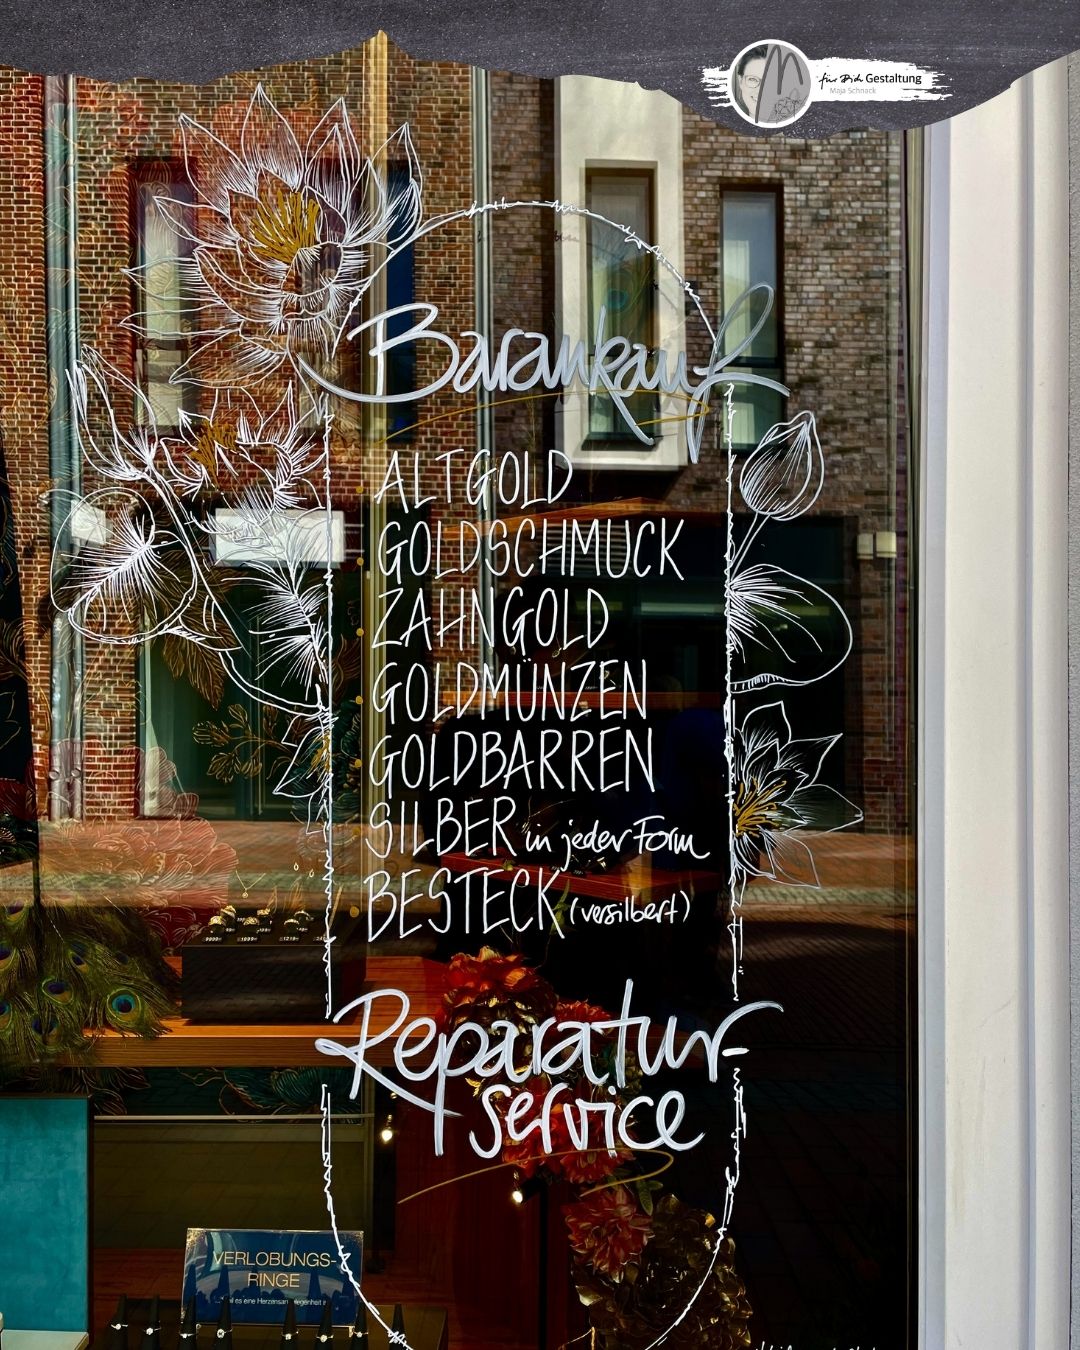 für Dich Gestaltung
Maja Schnack
Barankauf
ALTGOLD
GOLDSCHMUCK
ZAHNGOLD
GOLDMÜNZEN
GOLDBARREN
SILBER in jeder Form
BESTECK (versilbert)
Reparatur-
service
VERLOBUNGS-
RINGE
es eine Herzensangelegenheit